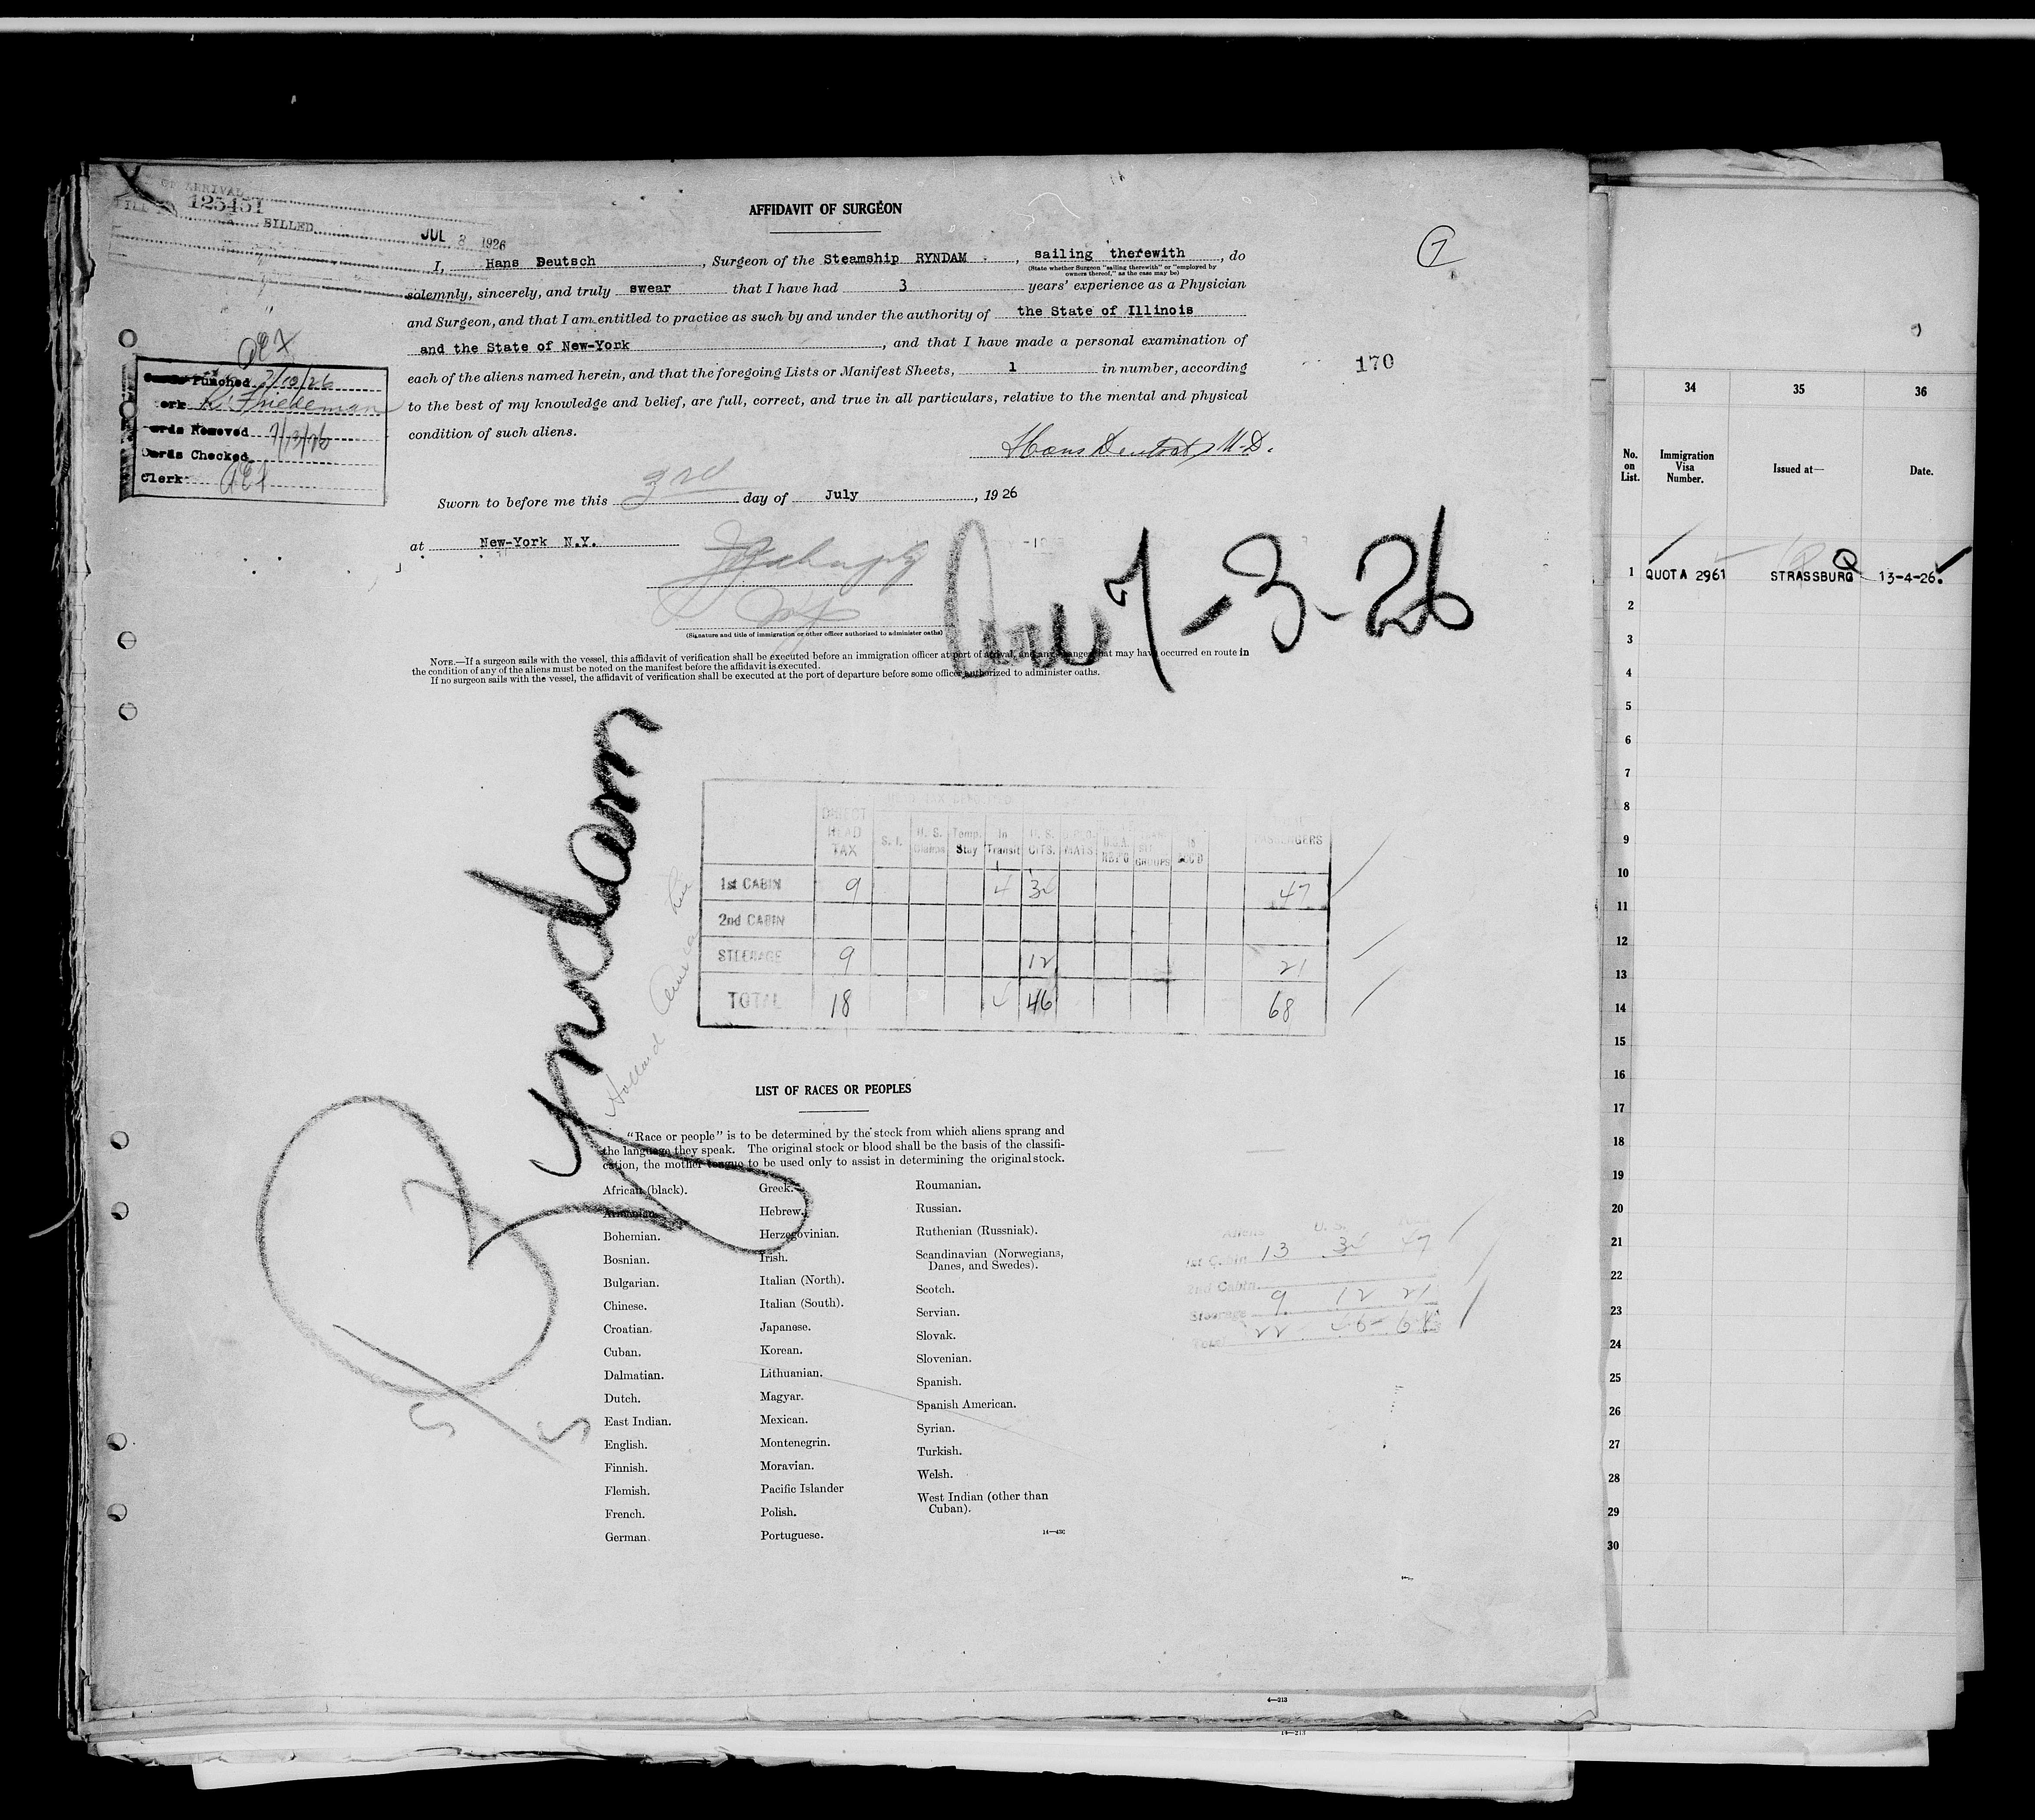 OF ARRIVAL
125451
BILLED
JUL 8 1926
AFFIDAVIT OF SURGEON
I, Hans Deutsch, Surgeon of the Steamship RYNDAM, sailing therewith, do
(State whether Surgeon "sailing therewith" or "employed by
owners thereof," as the case may be)
solemnly, sincerely, and truly swear that I have had 3 years' experience as a Physician
and Surgeon, and that I am entitled to practice as such by and under the authority of the State of Illinois
and the State of New-York, and that I have made a personal examination of
each of the aliens named herein, and that the foregoing Lists or Manifest Sheets, 1 in number, according
to the best of my knowledge and belief, are full, correct, and true in all particulars, relative to the mental and physical
condition of such aliens.
Hans Deutsch, M.D.
Sworn to before me this 3rd day of July, 1926
at New-York N.Y.
(Signature and title of immigration or other officer authorized to administer oaths)
NOTE.—If a surgeon sails with the vessel, this affidavit of verification shall be executed before an immigration officer at port of arrival, and any changes that may have occurred en route in
the condition of any of the aliens must be noted on the manifest before the affidavit is executed.
If no surgeon sails with the vessel, the affidavit of verification shall be executed at the port of departure before some officer authorized to administer oaths.
170
Punched 7/12/26
Removed 7/13/26
Checked
Clerk
7-3-26
Ryndam
S/S
Holland America Line
DIRECT HEAD TAX S. I. U. S. Temp. Stay In Transit U. S. CITS. PASSENGERS
1st CABIN 9 4 34 47
2nd CABIN
STEERAGE 9 12 21
TOTAL 18 4 46 68
LIST OF RACES OR PEOPLES
"Race or people" is to be determined by the stock from which aliens sprang and
the language they speak. The original stock or blood shall be the basis of the classifi-
cation, the mother tongue to be used only to assist in determining the original stock.
African (black).
Armenian.
Bohemian.
Bosnian.
Bulgarian.
Chinese.
Croatian.
Cuban.
Dalmatian.
Dutch.
East Indian.
English.
Finnish.
Flemish.
French.
German.
Greek.
Hebrew.
Herzegovinian.
Irish.
Italian (North).
Italian (South).
Japanese.
Korean.
Lithuanian.
Magyar.
Mexican.
Montenegrin.
Moravian.
Pacific Islander
Polish.
Portuguese.
Roumanian.
Russian.
Ruthenian (Russniak).
Scandinavian (Norwegians,
Danes, and Swedes).
Scotch.
Servian.
Slovak.
Slovenian.
Spanish.
Spanish American.
Syrian.
Turkish.
Welsh.
West Indian (other than
Cuban).
Aliens U. S.
1st Cabin 13 34 47
2nd Cabin
Steerage 9 12 21
Total 22 46 68
4—213
14—213
34 35 36
No. on List. Immigration Visa Number. Issued at— Date.
1 QUOTA 2961 STRASSBURG 13-4-26.
2
3
4
5
6
7
8
9
10
11
12
13
14
15
16
17
18
19
20
21
22
23
24
25
26
27
28
29
30